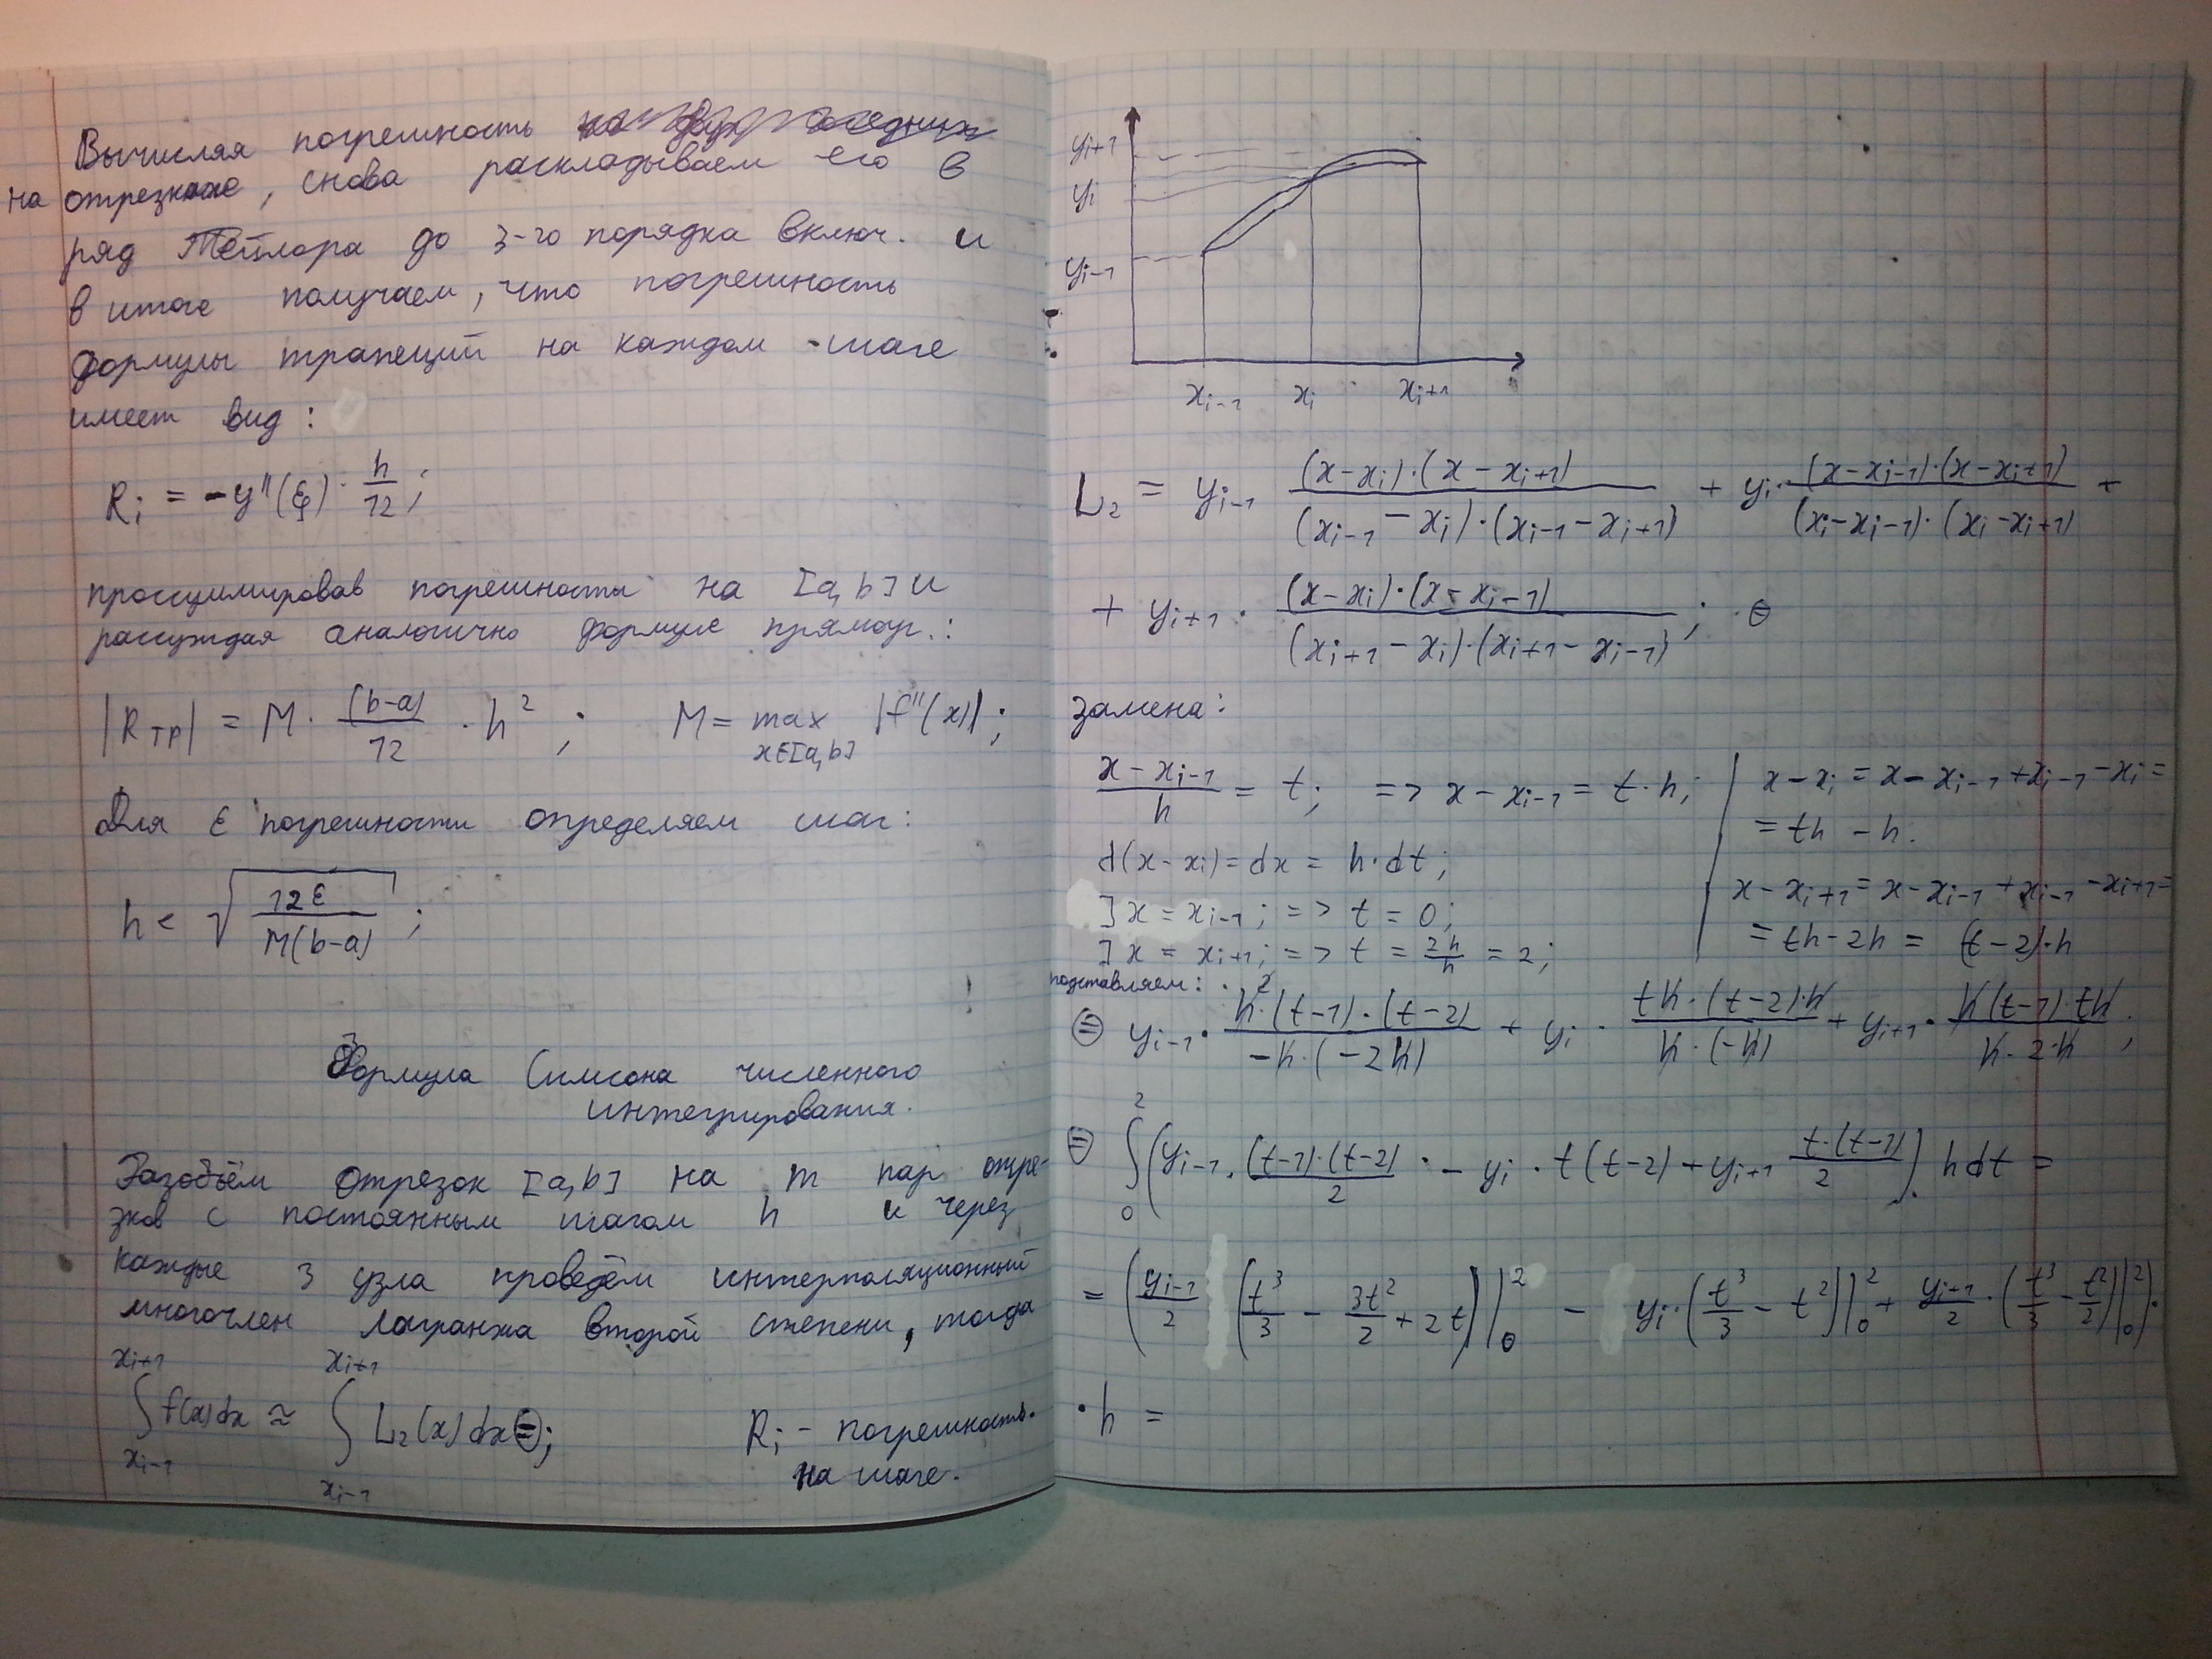 Вычисляя погрешность
на отрезке, снова раскладываем его в
ряд Тейлора до 3-го порядка включ. и
в итоге получаем, что погрешность
формулы трапеций на каждом шаге
имеет вид:
R_i = -y''(ξ) · h/12;
просуммировав погрешности на [a,b] и
рассуждая аналогично формуле прямоуг.:
|R_тр| = M · (b-a)/12 · h²; M = max_{x∈[a,b]} |f''(x)|;
Для ε погрешности определяем шаг:
h < √(12ε / M(b-a));
Формула Симсона численного
интегрирования.
Разобьём отрезок [a,b] на m пар отре-
зков с постоянным шагом h и через
каждые 3 узла проведём интерполяционный
многочлен Лагранжа второй степени, тогда
∫_{x_{i-1}}^{x_{i+1}} f(x)dx ≈ ∫_{x_{i-1}}^{x_{i+1}} L₂(x)dx ⊜; R_i - погрешность
на шаге.
y_{i+1}
y_i
y_{i-1}
x_{i-1} x_i x_{i+1}
L₂ = y_{i-1} (x-x_i)·(x-x_{i+1}) / (x_{i-1}-x_i)·(x_{i-1}-x_{i+1}) + y_i · (x-x_{i-1})·(x-x_{i+1}) / (x_i-x_{i-1})·(x_i-x_{i+1}) +
+ y_{i+1} · (x-x_i)·(x-x_{i-1}) / (x_{i+1}-x_i)·(x_{i+1}-x_{i-1}); ⊜
замена:
(x-x_{i-1})/h = t; => x-x_{i-1} = t·h; | x-x_i = x-x_{i-1}+x_{i-1}-x_i =
= th - h.
d(x-x_i) = dx = h·dt;
x-x_{i+1} = x-x_{i-1}+x_{i-1}-x_{i+1} =
= th-2h = (t-2)·h
] x = x_{i-1}; => t = 0;
] x = x_{i+1}; => t = 2h/h = 2;
подставляем:
⊜ y_{i-1} · h²·(t-1)·(t-2) / -h·(-2h) + y_i · th·(t-2)·h / h·(-h) + y_{i+1} · h(t-1)·th / h·2·h;
⊜ ∫_0^2 (y_{i-1} · (t-1)·(t-2)/2 · - y_i · t(t-2) + y_{i+1} t·(t-1)/2) · h dt =
= (y_{i-1}/2 (t³/3 - 3t²/2 + 2t)|_0^2 - y_i·(t³/3 - t²)|_0^2 + y_{i+1}/2 · (t³/3 - t²/2)|_0^2) ·
· h =